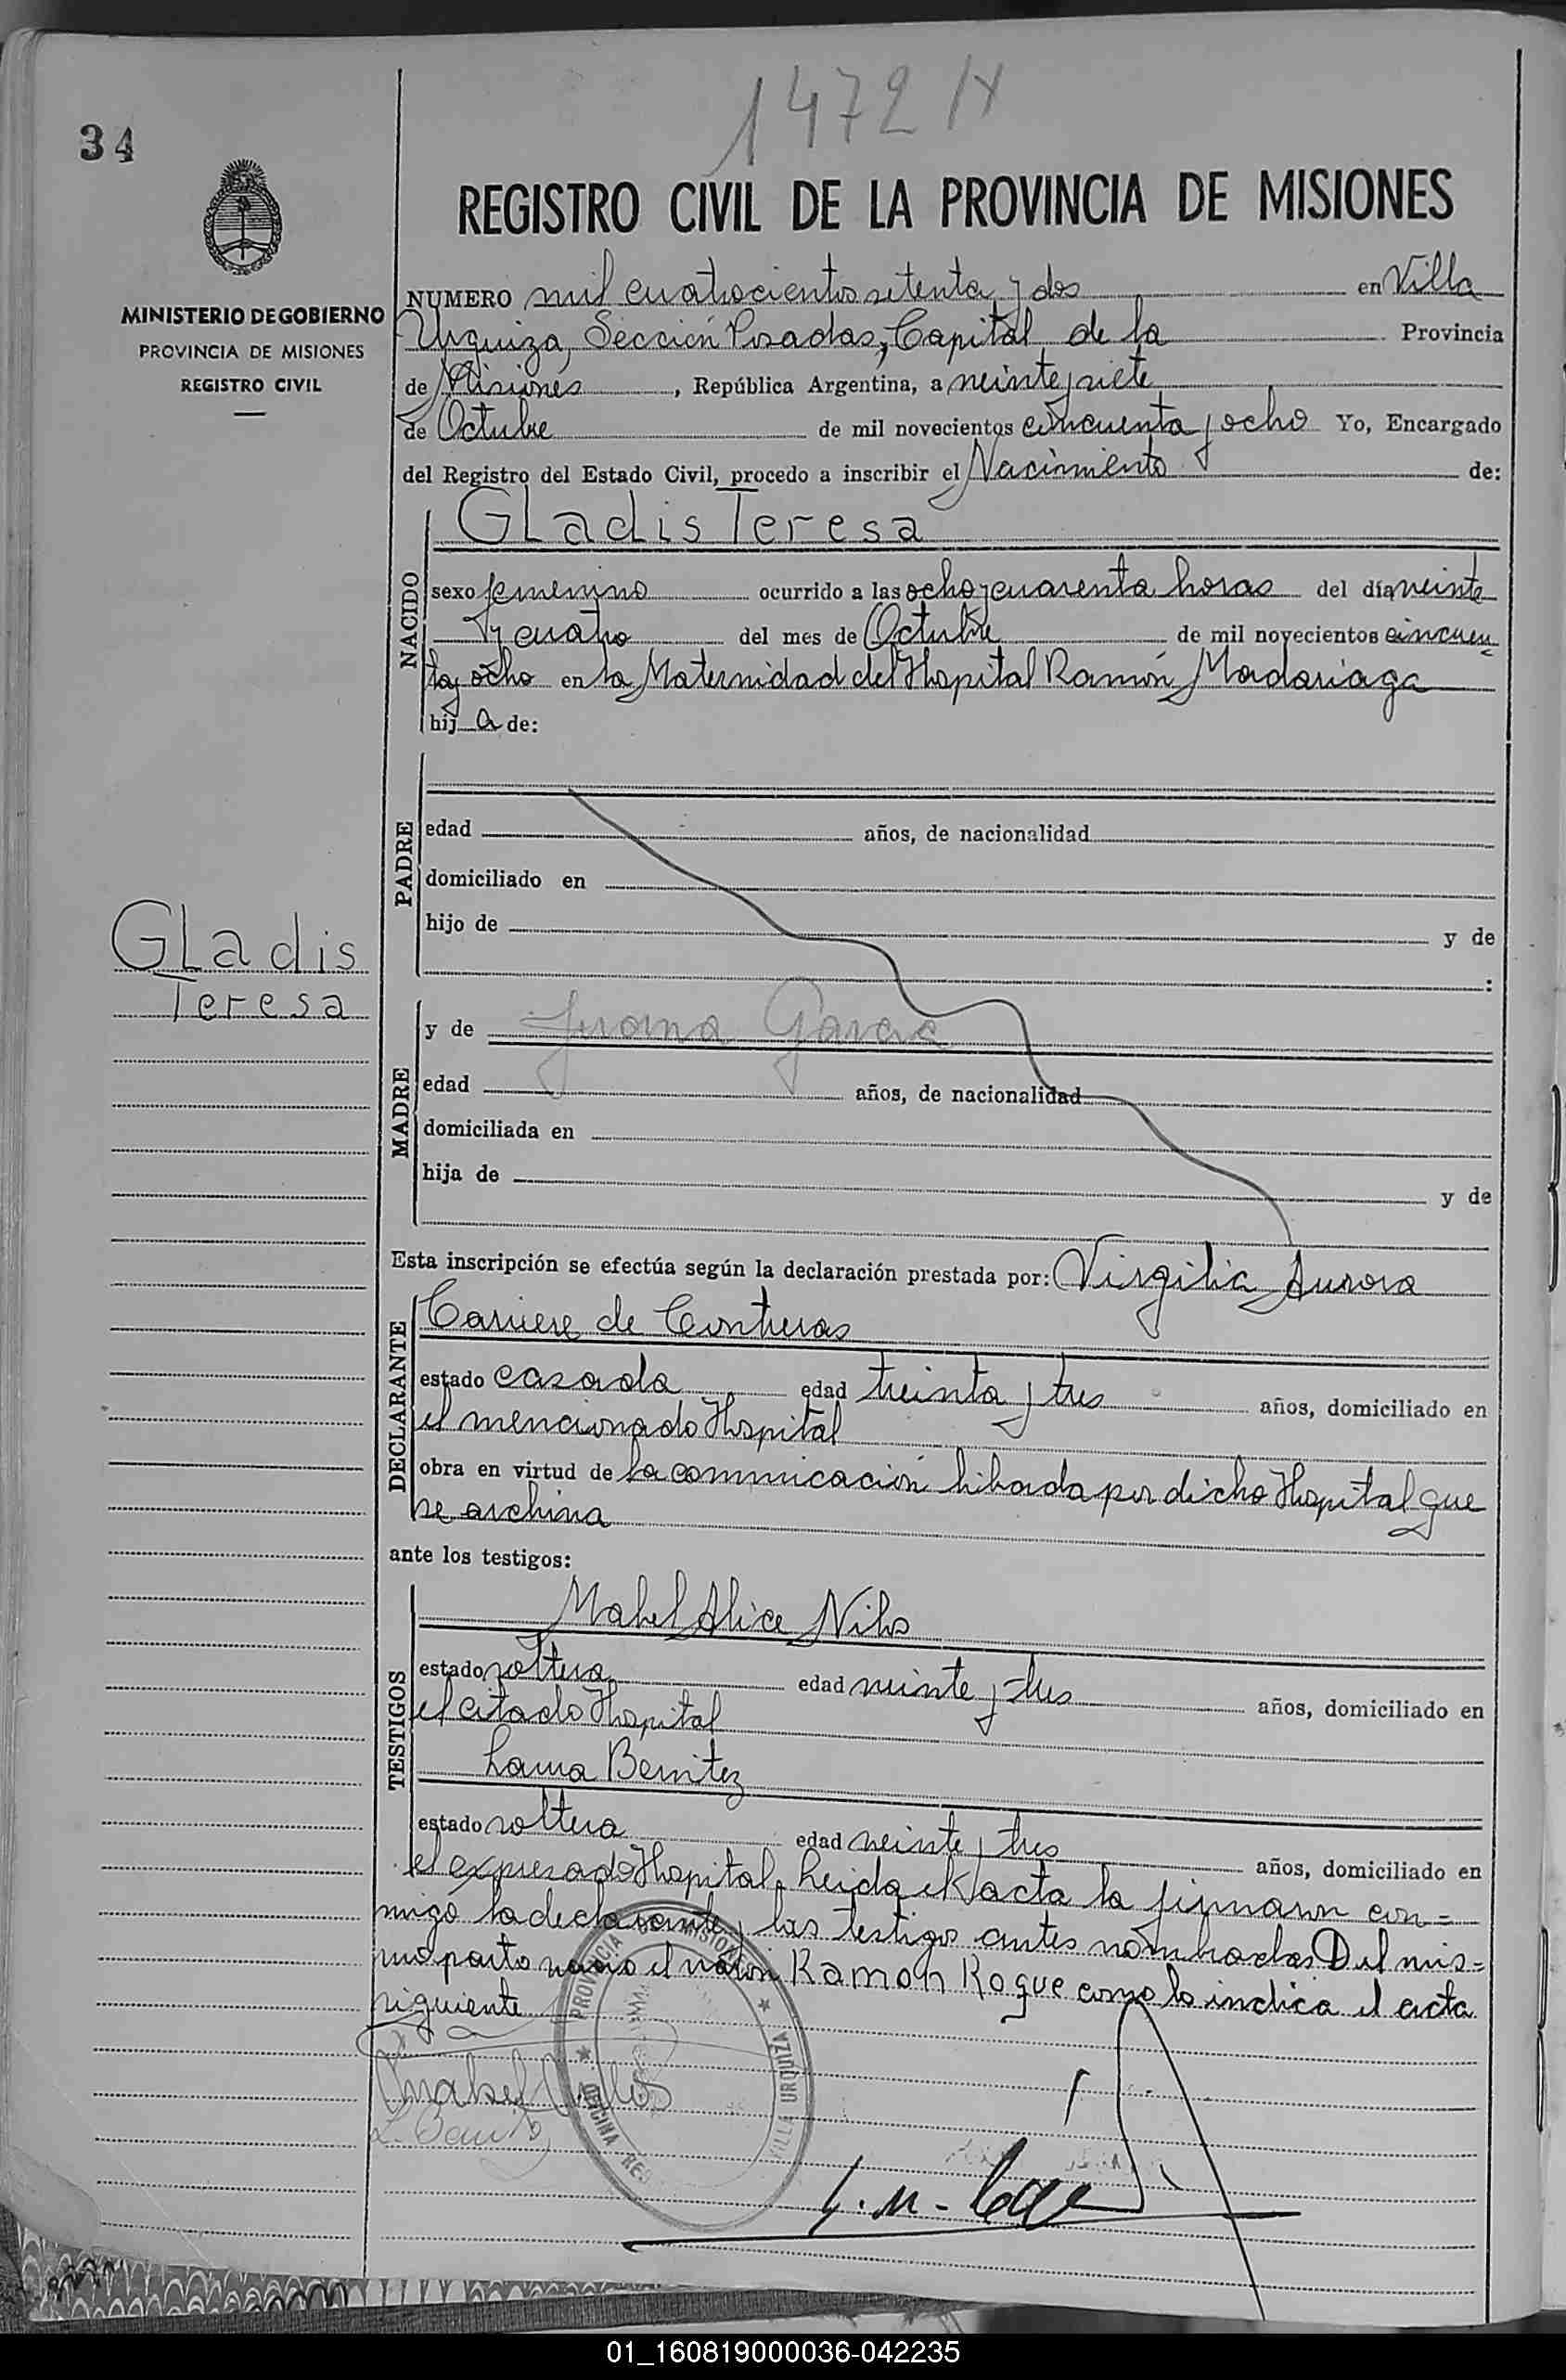 1472
34
REGISTRO CIVIL DE LA PROVINCIA DE MISIONES
MINISTERIO DE GOBIERNO
PROVINCIA DE MISIONES
REGISTRO CIVIL
NUMERO mil cuatrocientos setenta y dos en Villa
Urquiza, Sección Posadas, Capital de la Provincia
de Misiones, República Argentina, a veinte y siete
de Octubre de mil novecientos cincuenta y ocho Yo, Encargado
del Registro del Estado Civil, procedo a inscribir el Nacimiento de:
NACIDO
GLadis Teresa
sexo femenino ocurrido a las ocho y cuarenta horas del día veinte
y cuatro del mes de Octubre de mil novecientos cincuen
ta y ocho en la Maternidad del Hospital Ramón Madariaga
hij a de:
PADRE
edad años, de nacionalidad
domiciliado en
hijo de y de
:
GLadis
Teresa
MADRE
y de Juana Garcia
edad años, de nacionalidad
domiciliada en
hija de y de
Esta inscripción se efectúa según la declaración prestada por: Virgilia Aurora
DECLARANTE
Carriere de Contreras
estado casada edad treinta y tres años, domiciliado en
el mencionado Hospital
obra en virtud de la comunicación librada por dicho Hospital que
se archiva
ante los testigos:
TESTIGOS
Mabel Alice Nilos
estado soltera edad veinte y tres años, domiciliado en
el citado Hospital
Laura Benitez
estado soltera edad veinte y tres años, domiciliado en
el expresado Hospital. Leida el acta la firmaron con=
migo la declarante y las testigos antes nombradas Del mis=
mo parto nacio el varón Ramon Roque como lo indica el acta
siguiente
PROVINCIA DE MISIONES
OFICINA
VILLA URQUIZA
01_160819000036-042235